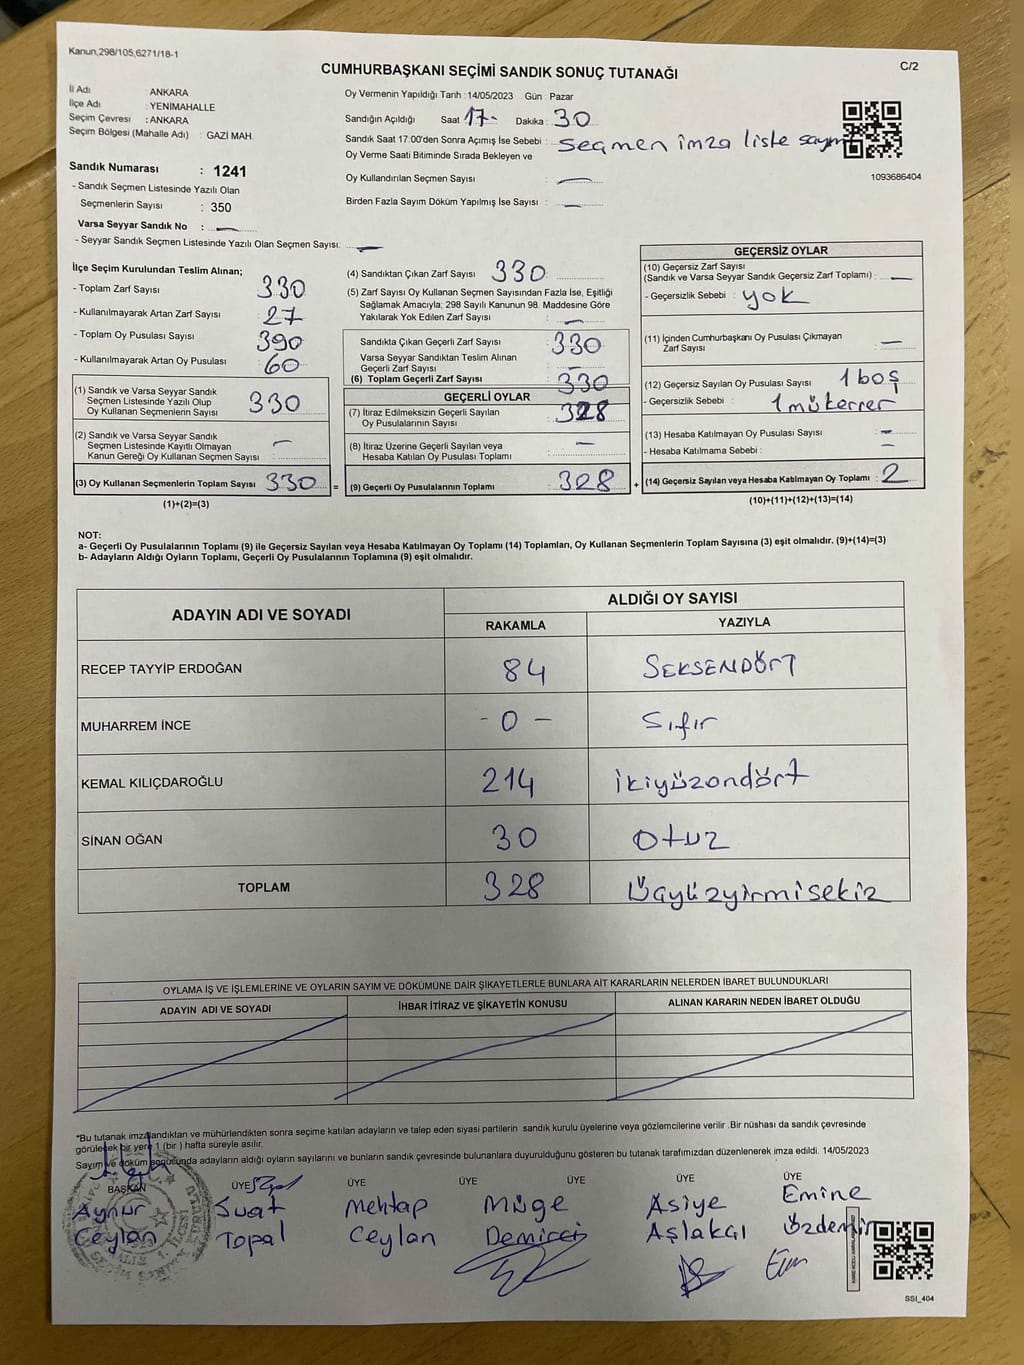 Kanun,298/105,6271/18-1
C/2
CUMHURBAŞKANI SEÇİMİ SANDIK SONUÇ TUTANAĞI
İl Adı : ANKARA
İlçe Adı : YENİMAHALLE
Seçim Çevresi : ANKARA
Seçim Bölgesi (Mahalle Adı) : GAZİ MAH.
Sandık Numarası : 1241
- Sandık Seçmen Listesinde Yazılı Olan
Seçmenlerin Sayısı : 350
Varsa Seyyar Sandık No : —
- Seyyar Sandık Seçmen Listesinde Yazılı Olan Seçmen Sayısı: —
Oy Vermenin Yapıldığı Tarih : 14/05/2023 Gün : Pazar
Sandığın Açıldığı Saat 17- Dakika : 30
Sandık Saat 17:00'den Sonra Açımış İse Sebebi : Seçmen imza liste sayım
Oy Verme Saati Bitiminde Sırada Bekleyen ve
Oy Kullandırılan Seçmen Sayısı : —
Birden Fazla Sayım Döküm Yapılmış İse Sayısı : —
1093686404
İlçe Seçim Kurulundan Teslim Alınan;
- Toplam Zarf Sayısı 330
- Kullanılmayarak Artan Zarf Sayısı : 27
- Toplam Oy Pusulası Sayısı 390
- Kullanılmayarak Artan Oy Pusulası 60
(1) Sandık ve Varsa Seyyar Sandık
Seçmen Listesinde Yazılı Olup
Oy Kullanan Seçmenlerin Sayısı 330
(2) Sandık ve Varsa Seyyar Sandık
Seçmen Listesinde Kayıtlı Olmayan
Kanun Gereği Oy Kullanan Seçmen Sayısı : —
(3) Oy Kullanan Seçmenlerin Toplam Sayısı 330 =
(1)+(2)=(3)
(4) Sandıktan Çıkan Zarf Sayısı 330
(5) Zarf Sayısı Oy Kullanan Seçmen Sayısından Fazla İse, Eşitliği
Sağlamak Amacıyla; 298 Sayılı Kanunun 98. Maddesine Göre
Yakılarak Yok Edilen Zarf Sayısı : —
Sandıkta Çıkan Geçerli Zarf Sayısı : 330
Varsa Seyyar Sandıktan Teslim Alınan
Geçerli Zarf Sayısı : —
(6) Toplam Geçerli Zarf Sayısı : 330
GEÇERLİ OYLAR
(7) İtiraz Edilmeksizin Geçerli Sayılan
Oy Pusulalarının Sayısı : 328
(8) İtiraz Üzerine Geçerli Sayılan veya
Hesaba Katılan Oy Pusulası Toplamı : —
(9) Geçerli Oy Pusulalarının Toplamı : 328 +
GEÇERSİZ OYLAR
(10) Geçersiz Zarf Sayısı
(Sandık ve Varsa Seyyar Sandık Geçersiz Zarf Toplamı) : —
- Geçersizlik Sebebi : yok
(11) İçinden Cumhurbaşkanı Oy Pusulası Çıkmayan
Zarf Sayısı : —
(12) Geçersiz Sayılan Oy Pusulası Sayısı : 1 boş
- Geçersizlik Sebebi : 1 mükerrer
(13) Hesaba Katılmayan Oy Pusulası Sayısı : —
- Hesaba Katılmama Sebebi : —
(14) Geçersiz Sayılan veya Hesaba Katılmayan Oy Toplamı : 2
(10)+(11)+(12)+(13)=(14)
NOT:
a- Geçerli Oy Pusulalarının Toplamı (9) ile Geçersiz Sayılan veya Hesaba Katılmayan Oy Toplamı (14) Toplamları, Oy Kullanan Seçmenlerin Toplam Sayısına (3) eşit olmalıdır. (9)+(14)=(3)
b- Adayların Aldığı Oyların Toplamı, Geçerli Oy Pusulalarının Toplamına (9) eşit olmalıdır.
ADAYIN ADI VE SOYADI ALDIĞI OY SAYISI
RAKAMLA YAZIYLA
RECEP TAYYİP ERDOĞAN 84 SEKSENDÖRT
MUHARREM İNCE - 0 - Sıfır
KEMAL KILIÇDAROĞLU 214 ikiyüzondört
SİNAN OĞAN 30 Otuz
TOPLAM 328 Üçyüzyirmisekiz
OYLAMA İŞ VE İŞLEMLERİNE VE OYLARIN SAYIM VE DÖKÜMÜNE DAİR ŞİKAYETLERLE BUNLARA AİT KARARLARIN NELERDEN İBARET BULUNDUKLARI
ADAYIN ADI VE SOYADI İHBAR İTİRAZ VE ŞİKAYETİN KONUSU ALINAN KARARIN NEDEN İBARET OLDUĞU
*Bu tutanak imzalandıktan ve mühürlendikten sonra seçime katılan adayların ve talep eden siyasi partilerin sandık kurulu üyelerine veya gözlemcilerine verilir .Bir nüshası da sandık çevresinde
görülecek bir yere 1 (bir ) hafta süreyle asılır.
Sayım ve döküm sonucunda adayların aldığı oyların sayılarını ve bunların sandık çevresinde bulunanlara duyurulduğunu gösteren bu tutanak tarafımızdan düzenlenerek imza edildi. 14/05/2023
BAŞKAN ÜYE ÜYE ÜYE ÜYE ÜYE ÜYE
Aynur Suat Mehtap Müge Asiye Emine
Ceylan Topal Ceylan Demirci Aşlakçı Özdemir
SSI_404